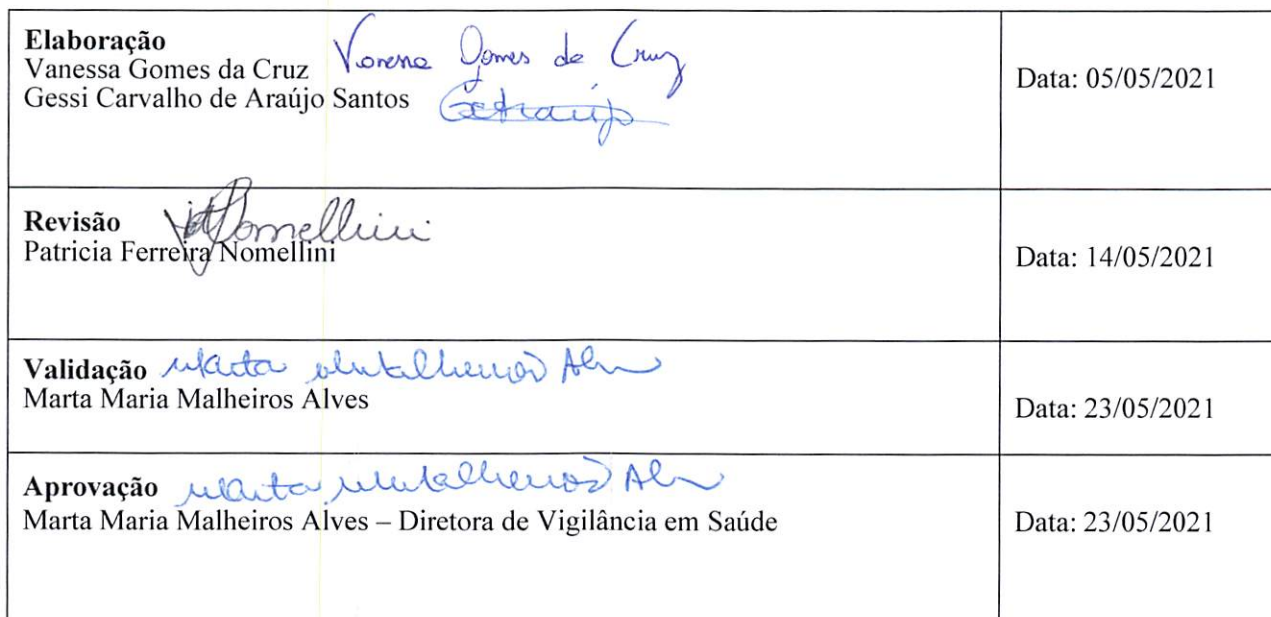 Elaboração
Vanessa Gomes da Cruz Vanessa Gomes da Cruz
Gessi Carvalho de Araújo Santos
Data: 05/05/2021
Revisão Nomellini
Patricia Ferreira Nomellini
Data: 14/05/2021
Validação Marta Malheiros Alves
Marta Maria Malheiros Alves
Data: 23/05/2021
Aprovação Marta Malheiros Alves
Marta Maria Malheiros Alves – Diretora de Vigilância em Saúde
Data: 23/05/2021